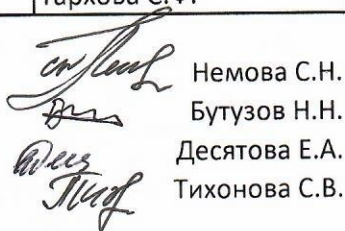 Тархова С.Ф.
Немова С.Н.
Бутузов Н.Н.
Десятова Е.А.
Тихонова С.В.